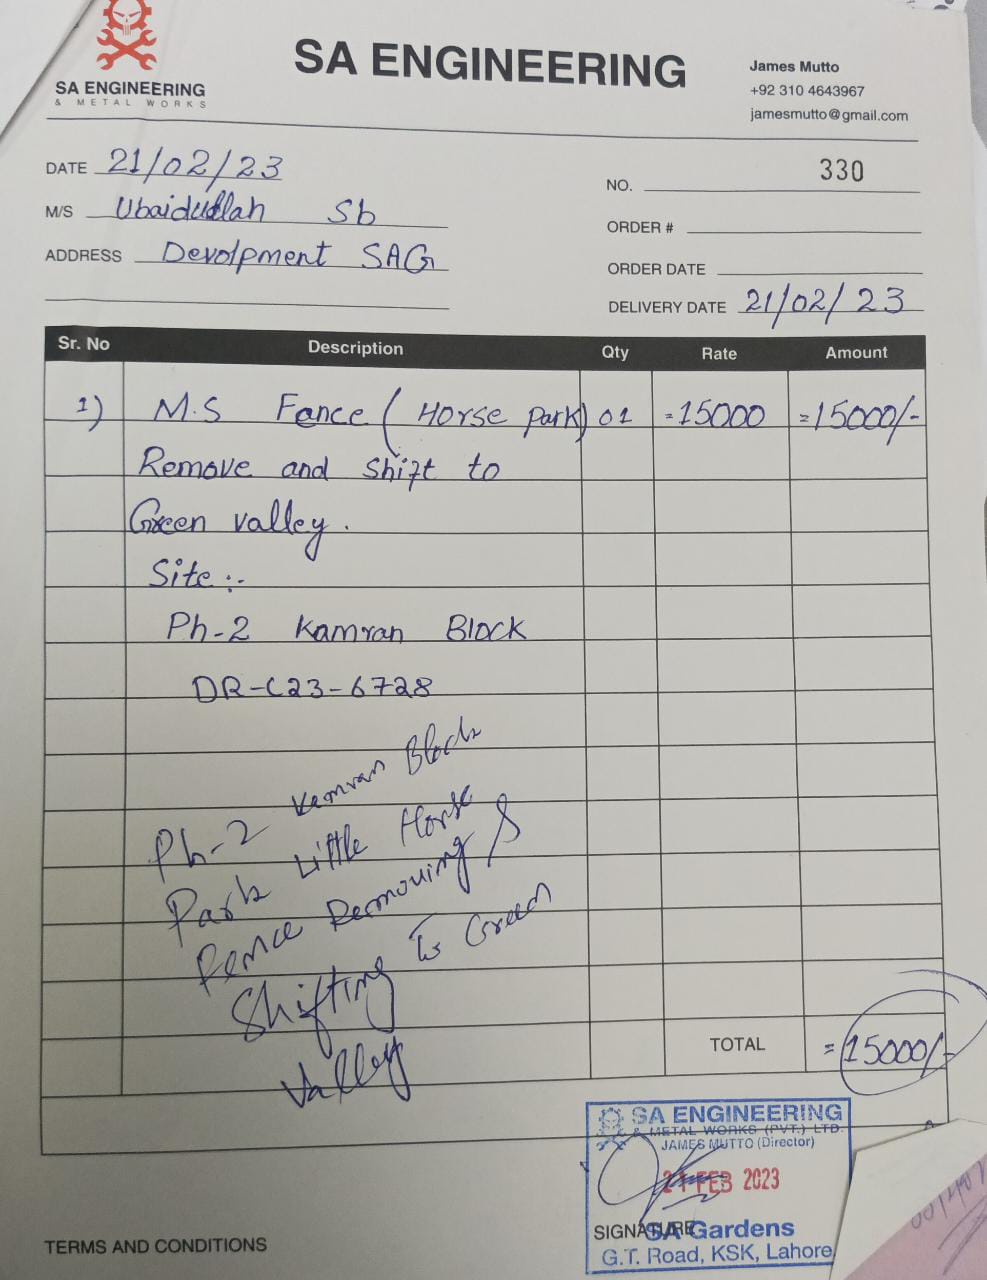 SA ENGINEERING
& METAL WORKS
SA ENGINEERING
James Mutto
+92 310 4643967
jamesmutto@gmail.com
DATE 21/02/23
NO. 330
M/S Ubaidullah Sb
ORDER #
ADDRESS Devolpment SAG
ORDER DATE
DELIVERY DATE 21/02/23
Sr. No Description Qty Rate Amount
1) M.S Fance (Horse Park) 01 =15000 =15000/-
Remove and Shift to
Green valley.
Site :-
Ph-2 Kamran Block
DR-C23-6728
Ph-2 Kamran Block
Park Little Horse
Fence Removing &
Shifting To Green
Valley
TOTAL =15000/-
SA ENGINEERING
& METAL WORKS (PVT.) LTD.
JAMES MUTTO (Director)
21 FEB 2023
SIGNATURE
SA Gardens
G.T. Road, KSK, Lahore
TERMS AND CONDITIONS